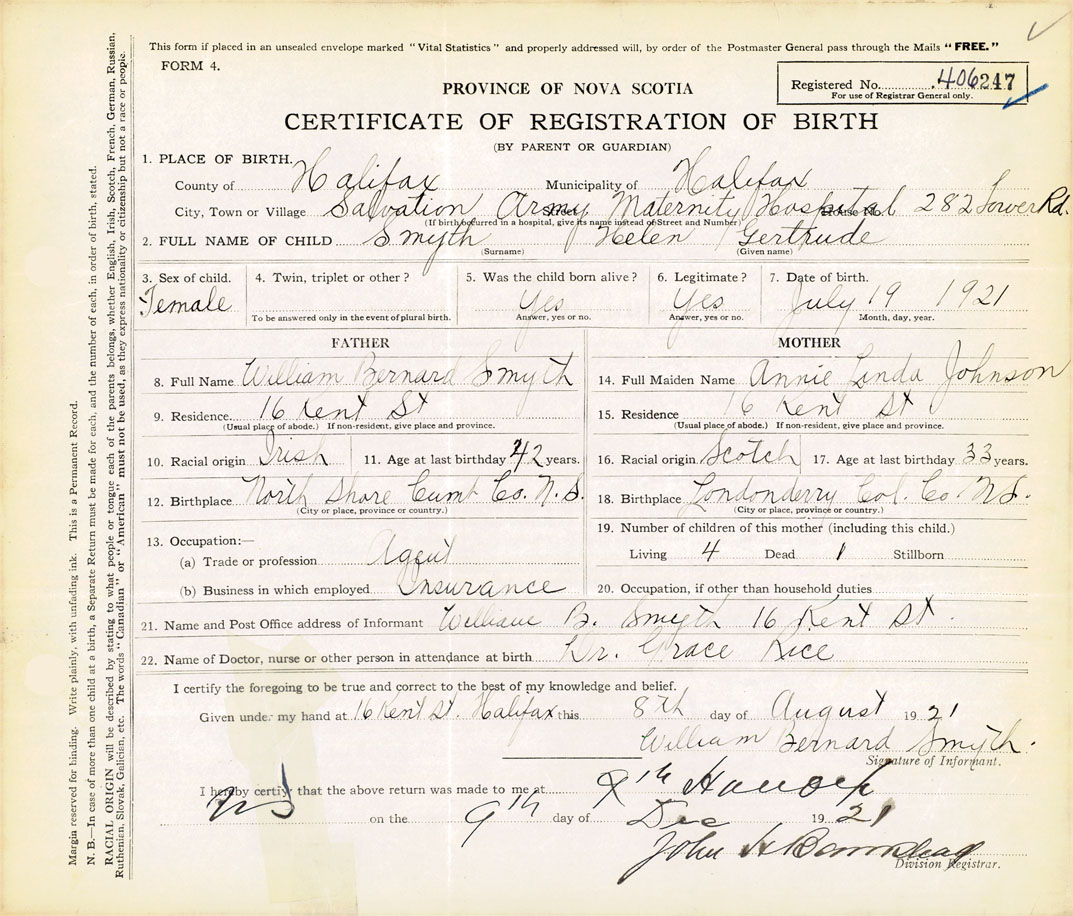 This form if placed in an unsealed envelope marked "Vital Statistics" and properly addressed will, by order of the Postmaster General pass through the Mails "FREE."
FORM 4.
PROVINCE OF NOVA SCOTIA
Registered No. 406247
For use of Registrar General only.
CERTIFICATE OF REGISTRATION OF BIRTH
(BY PARENT OR GUARDIAN)
1. PLACE OF BIRTH.
County of Halifax Municipality of Halifax
City, Town or Village Salvation Army Maternity Hospital 282 Tower Rd.
Street House No.
(If birth occurred in a hospital, give its name instead of Street and Number)
2. FULL NAME OF CHILD Smyth Helen Gertrude
(Surname) (Given name)
3. Sex of child. 4. Twin, triplet or other? 5. Was the child born alive? 6. Legitimate? 7. Date of birth.
Female Yes Yes July 19 1921
To be answered only in the event of plural birth. Answer, yes or no. Answer, yes or no. Month, day, year.
FATHER
8. Full Name William Bernard Smyth
9. Residence 16 Kent St
(Usual place of abode.) If non-resident, give place and province.
10. Racial origin Irish 11. Age at last birthday 42 years.
12. Birthplace North Shore Cumb Co. N.S.
(City or place, province or country.)
13. Occupation:—
(a) Trade or profession Agent
(b) Business in which employed Insurance
MOTHER
14. Full Maiden Name Annie Linda Johnson
15. Residence 16 Kent St
(Usual place of abode.) If non-resident, give place and province.
16. Racial origin Scotch 17. Age at last birthday 33 years.
18. Birthplace Londonderry Col. Co. N.S.
(City or place, province or country.)
19. Number of children of this mother (including this child.)
Living 4 Dead 1 Stillborn
20. Occupation, if other than household duties
21. Name and Post Office address of Informant William B. Smyth 16 Kent St.
22. Name of Doctor, nurse or other person in attendance at birth Dr. Grace Rice
I certify the foregoing to be true and correct to the best of my knowledge and belief.
Given under my hand at 16 Kent St. Halifax this 8th day of August 1921
William Bernard Smyth.
Signature of Informant.
I hereby certify that the above return was made to me at
on the 9th day of Dec 1921
John
Division Registrar.
Margin reserved for binding. Write plainly, with unfading ink. This is a Permanent Record.
N. B.—In case of more than one child at a birth, a Separate Return must be made for each, and the number of each, in order of birth, stated.
RACIAL ORIGIN will be described by stating to what people or tongue each of the parents belongs, whether English, Irish, Scotch, French, German, Russian,
Ruthenian, Slovak, Galician, etc. The words "Canadian" or "American" must not be used, as they express nationality or citizenship but not a race or people.